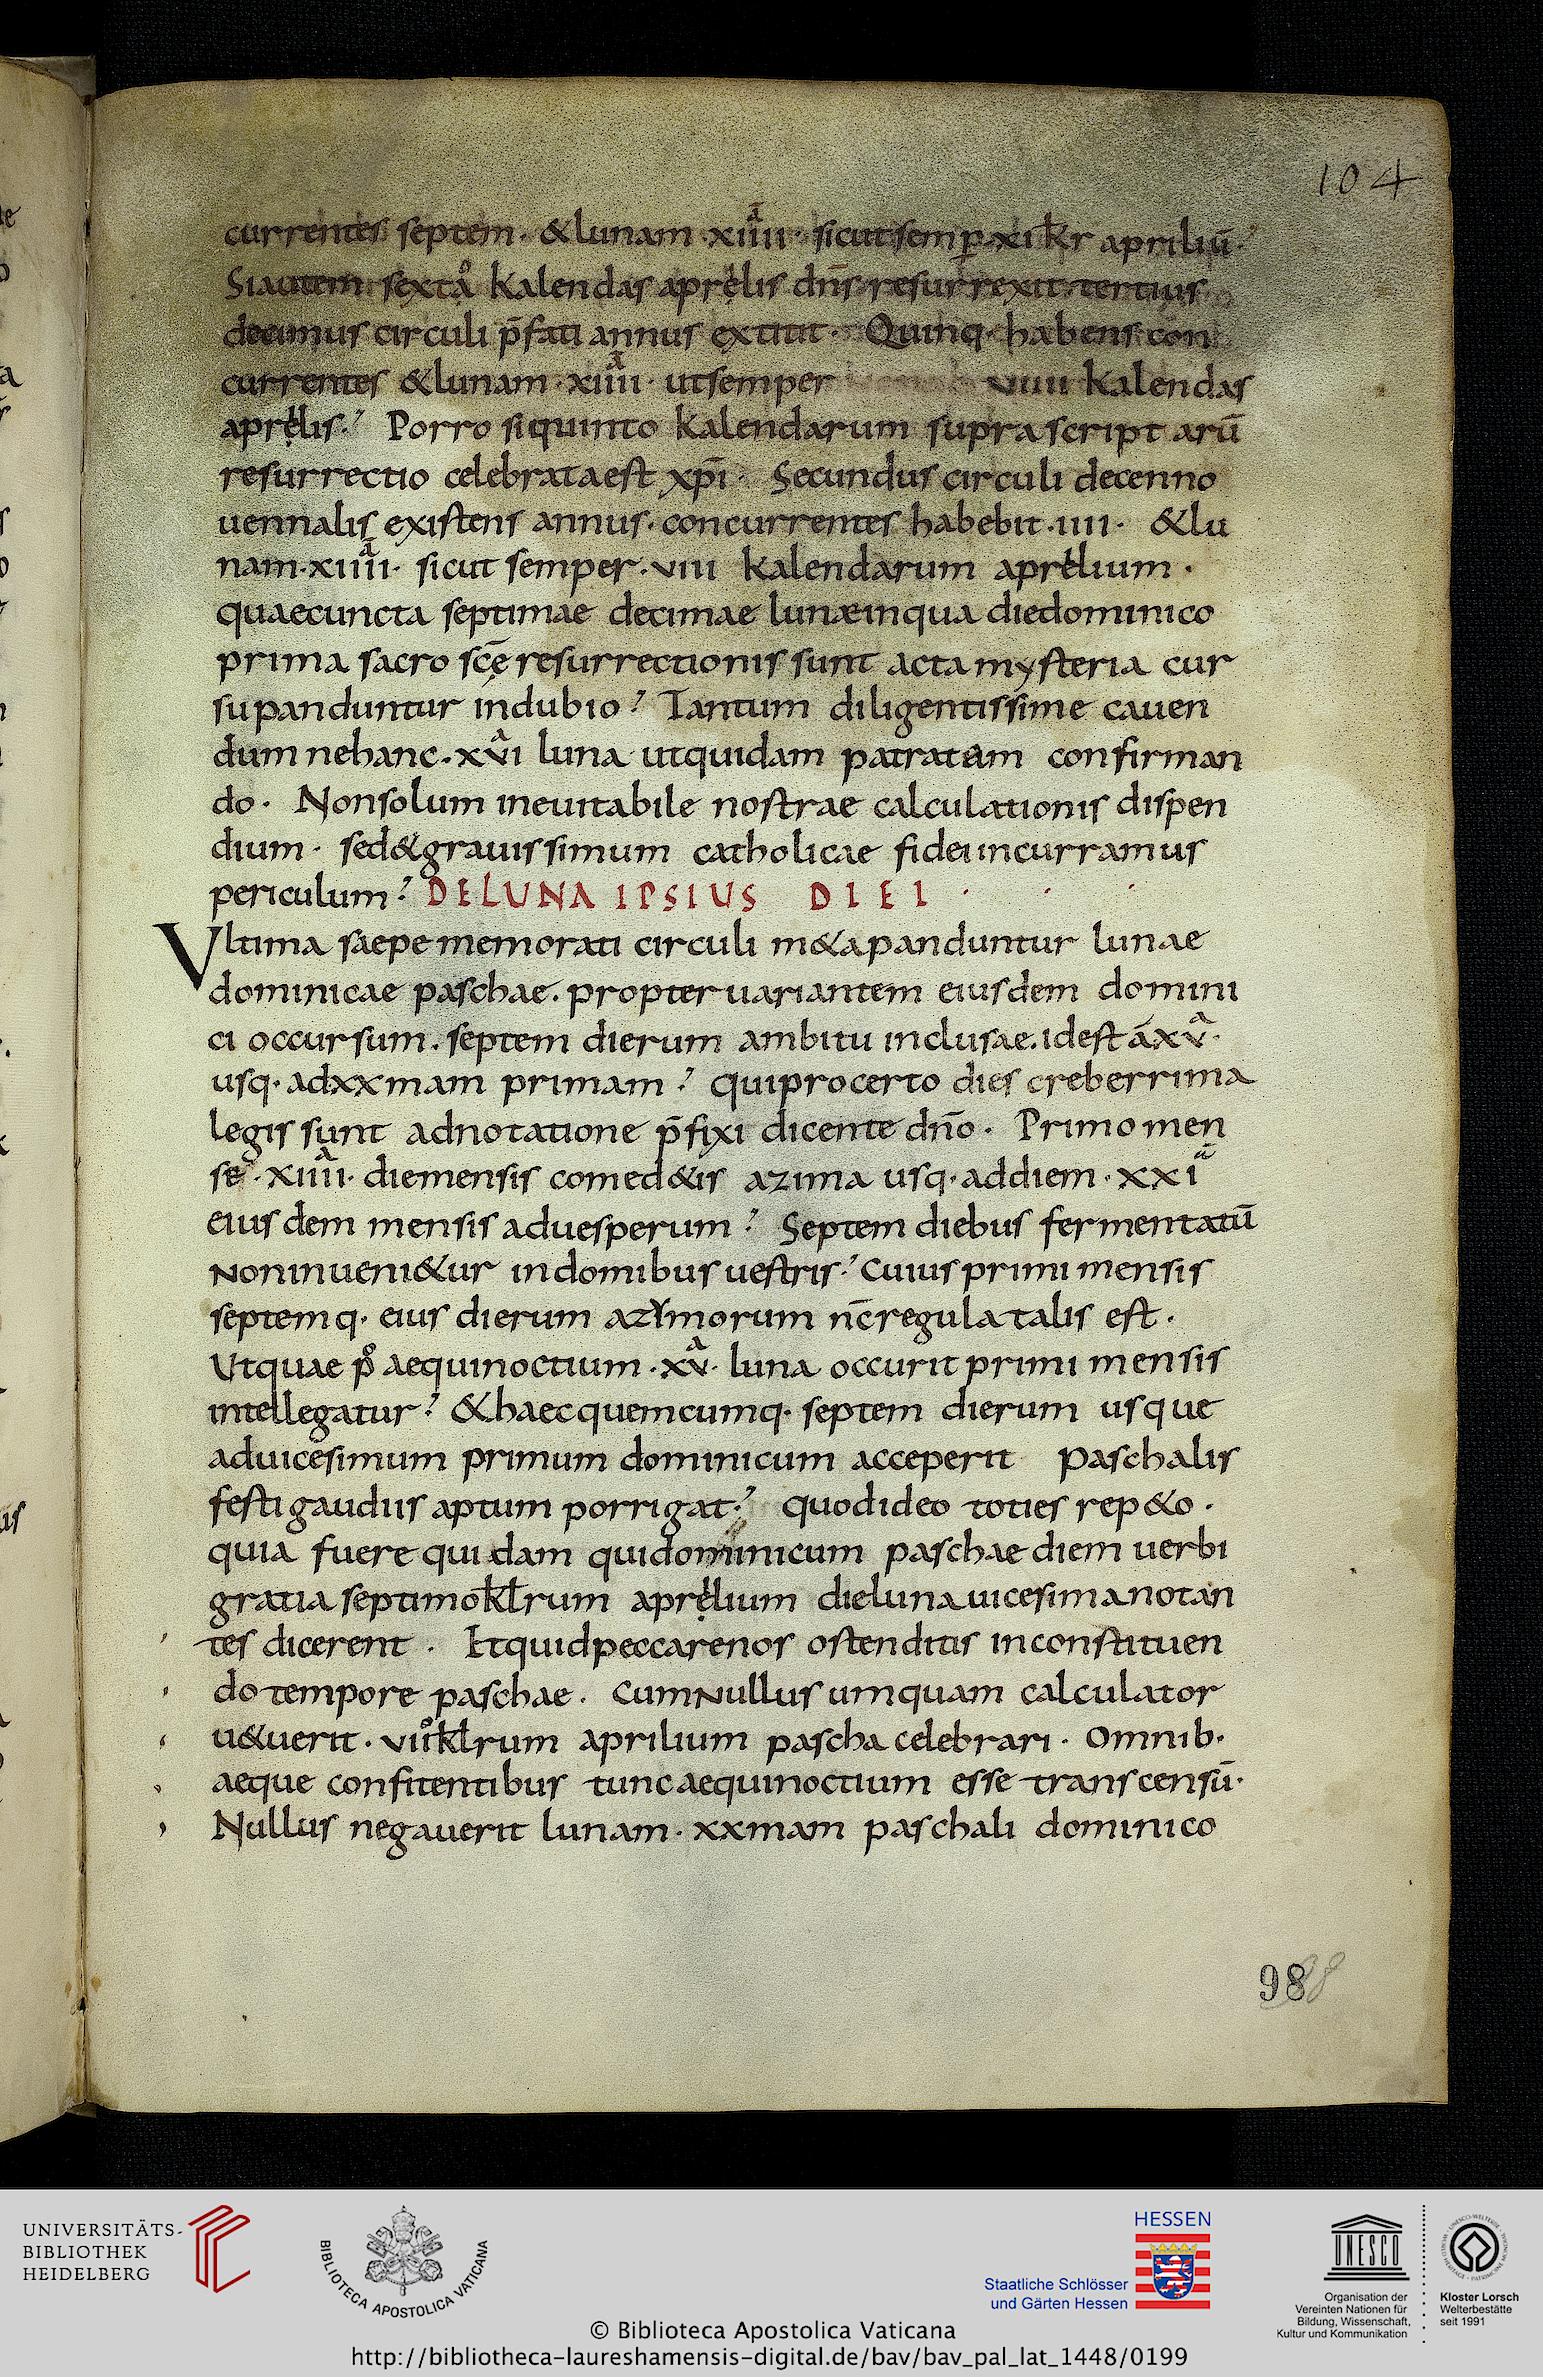 104
currentes septem · & lunam · xiiii^ã · sicut semp̱ xi k̅r apriliū ·
Si autem sextaͦ kalendas aprelis dn̄s resurrexit tertius
decimus circuli p̄fati annus extitit · Quinq· habens con
currentes & lunam · xiiii^ã · ut semper viiii kalendas
aprelis · Porro si quinto kalendarum suprascriptarū
resurrectio celebrata est xp̄i · Secundus circuli decenno
uennalis existens annus · concurrentes habebit · iiii · & lu
nam · xiiii^ã · sicut semper · viii kalendarum aprelium ·
quae cuncta septimae decimae lunae in qua die dominico
prima sacro sc̄ę resurrectionis sunt acta mysteria cur
su panduntur indubio? Tantum diligentissime cauen
dum ne hanc · xvi^a luna ut quidam patratam confirman
do · Non solum ineuitabile nostrae calculationis dispen
dium · sed & grauissimum catholicae fidei incurramus
periculum? DE LUNA IPSIUS DIEI
Vltima saepe memorati circuli m&a panduntur lunae
dominicae paschae · propter uariantem eiusdem domini
ci occursum · septem dierum ambitu inclusae · id est ā xv^a ·
usq· ad xxmam primam? qui pro certo dies creberrima
legis sunt adnotatione p̄fixi dicente dn̄o · Primo men
se · xiiii^a · die mensis comed&is azima usq· ad diem · xxi^ã
eiusdem mensis ad uesperum? Septem diebus fermentatū
Non inueni&ur in domibus uestris? Cuius primi mensis
septemq· eius dierum azymorum nc̄ regula talis est ·
Ut quae p̊ aequinoctium · xv^a · luna occurit primi mensis
intellegatur? & haec quemcumq· septem dierum usque
ad uicesimum primum dominicum acceperit Paschalis
festi gaudiis aptum porrigat? quod ideo toties rep&o ·
quia fuere quidam qui dominicum paschae diem uerbi
gratia septimo kl̅rum aprelium die luna uicesima notan
tes dicerent · Et quid peccare nos ostenditis in constituen
do tempore paschae · Cum Nullus umquam calculator
u&uerit · vii^o kl̅rum aprilium pascha celebrari · Omnib·
aeque confitentibus tunc aequinoctium esse transcensū ·
Nullus negauerit lunam · xxmam paschali dominico
98
UNIVERSITÄTS-
BIBLIOTHEK
HEIDELBERG
BIBLIOTECA APOSTOLICA VATICANA
HESSEN
Staatliche Schlösser
und Gärten Hessen
UNESCO
Organisation der
Vereinten Nationen für
Bildung, Wissenschaft,
Kultur und Kommunikation
Kloster Lorsch
Welterbestätte
seit 1991
© Biblioteca Apostolica Vaticana
http://bibliotheca-laureshamensis-digital.de/bav/bav_pal_lat_1448/0199